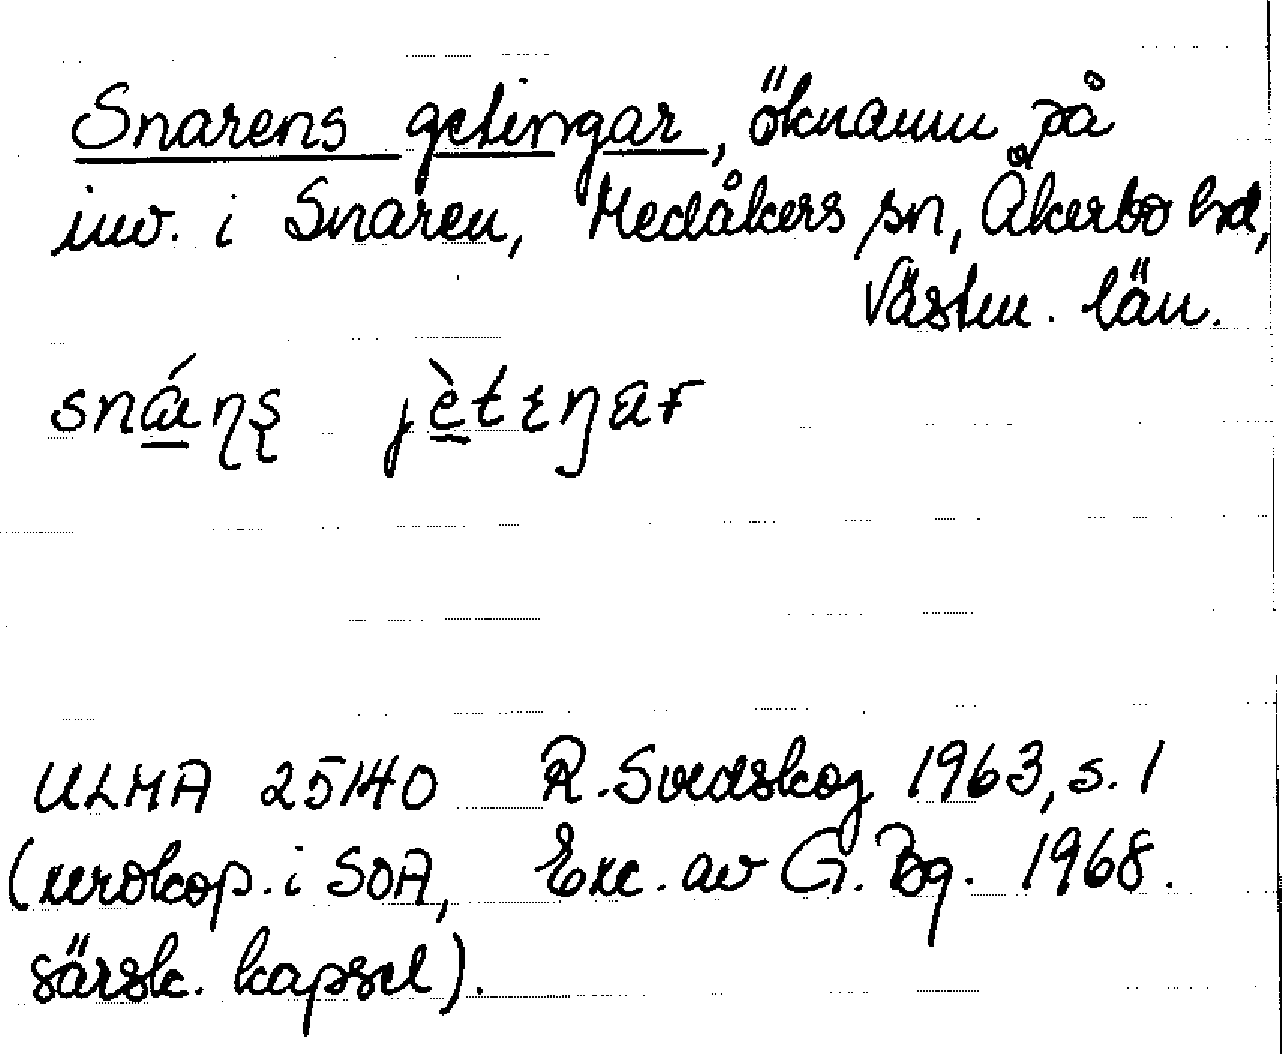 Snarens getingar, öknamn på
inv. i Snaren, Medåkers sn, Åkerbo hd,
Västm. län.
snáŋş jètɪŋar
ULMA 25140 R. Svedskog 1963, s. 1
(xerokop. i SOA, Exc. av G. Bg. 1968.
särsk. kapsel).